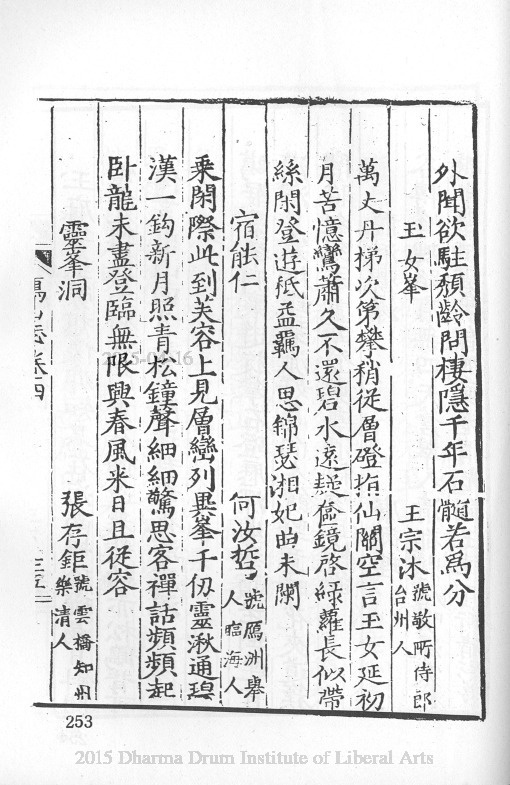 外聞欲駐頹齡問棲隱千年石髓若爲分
玉女峯 王宗沐 號敬所侍郎台州人
萬丈丹梯次第攀稍從層磴指仙關空言玉女延初
月苦憶鸞蕭久不還碧水遠疑奩鏡啓綠蘿長似帶
絲閑登遊秪益羈人思錦瑟湘妃曲未闌
宿能仁 何汝哲 號鴈洲舉人臨海人
乘閑際此到芙容上見層巒列異峯千仞靈湫通碧
漢一鈎新月照青松鐘聲細細驚思客禪話頻頻起
卧龍未盡登臨無限興春風来日且從容
靈峯洞 張存鉅 號雲橋知州樂清人
山志卷四
253
2015 Dharma Drum Institute of Liberal Arts